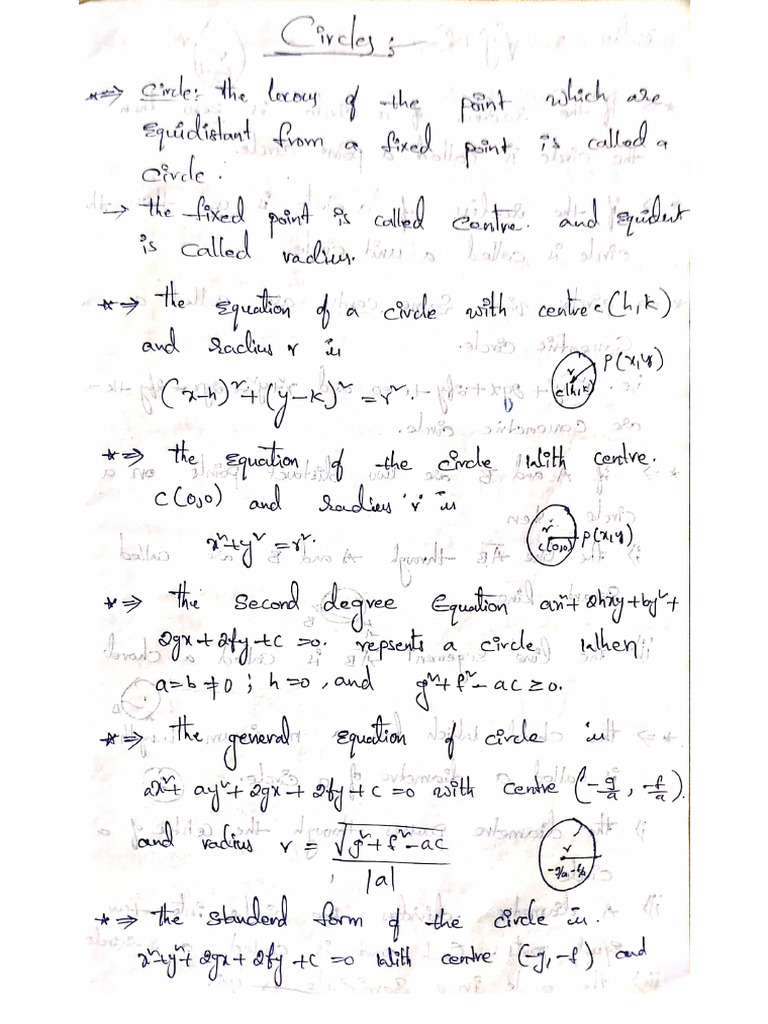 Circles :-
*⇒ Circle: the locous of the point which are
equidistant from a fixed point is called a
circle.
→ the fixed point is called centre. and equidist
is called radius.
*⇒ the equation of a circle with centre c(h,k)
and radius r is
(x-h)²+(y-k)²=r².
r c(h,k) P(x,y)
*⇒ the equation of the circle with centre.
c(0,0) and radius 'r' is
x²+y²=r².
r c(0,0) P(x,y)
*⇒ the second degree equation ax²+2hxy+by²+
2gx+2fy+c=0. repsents a circle when
a=b≠0 ; h=0, and g²+f²-ac≥0.
*⇒ the general equation of circle is
ax²+ay²+2gx+2fy+c=0 with centre (-g/a, -f/a).
and radius r = √(g²+f²-ac) / |a|
r -g/a, -f/a
*⇒ the standerd form of the circle is.
x²+y²+2gx+2fy+c=0 with centre (-g,-f) and